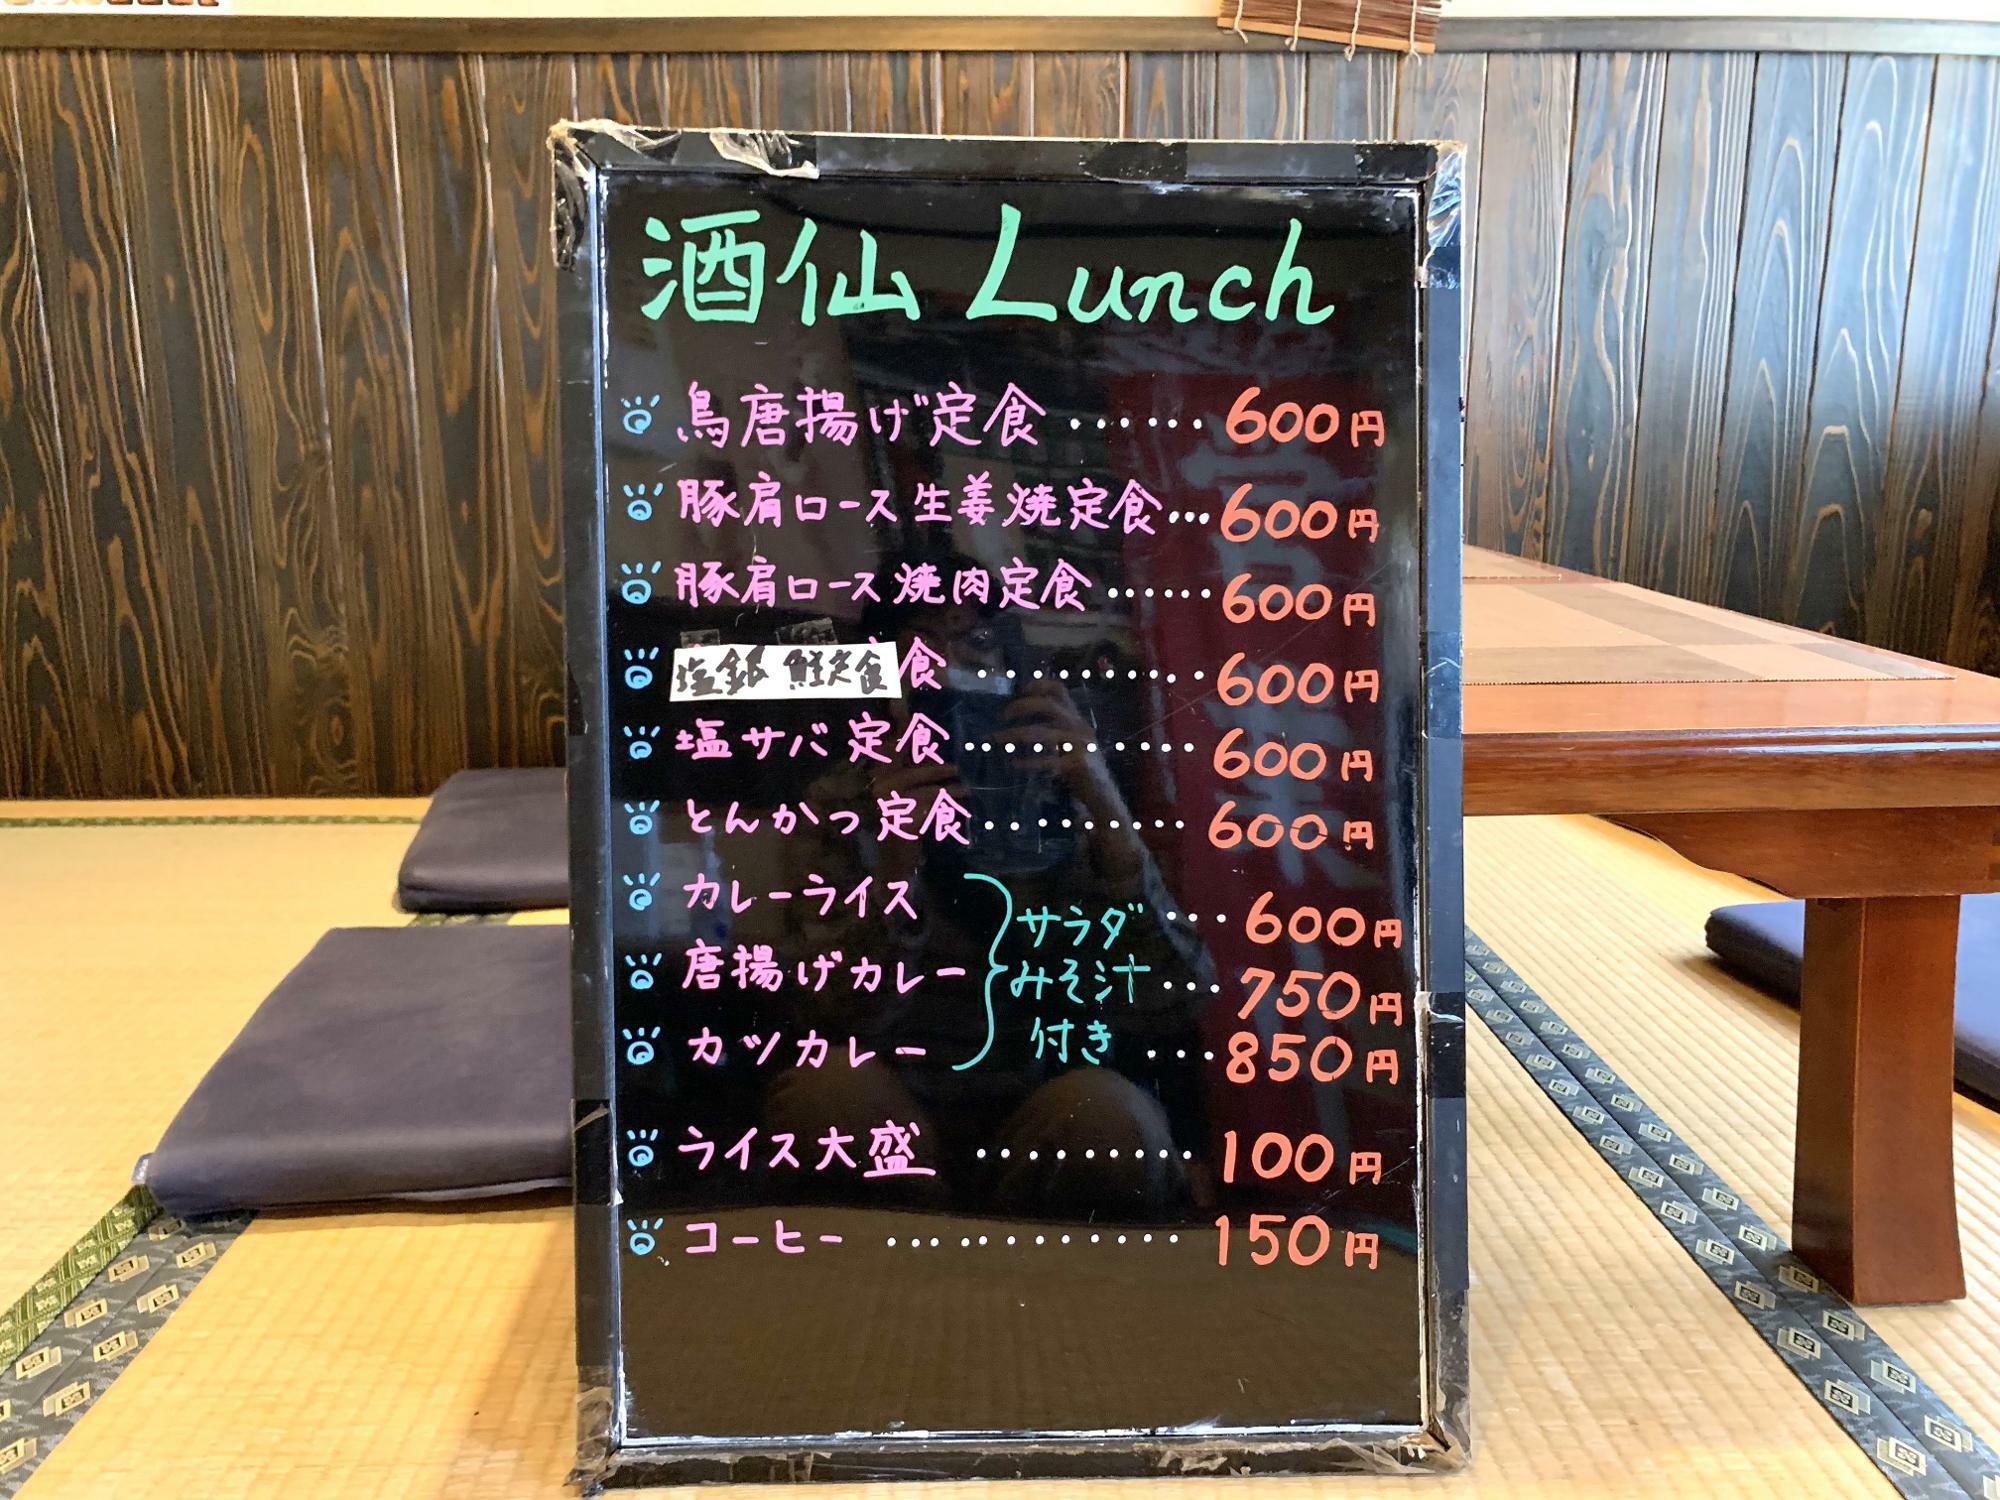 酒仙 Lunch
鳥唐揚げ定食 ...... 600円
豚肩ロース生姜焼定食 ... 600円
豚肩ロース焼肉定食 ...... 600円
塩銀鮭定食 食 ......... 600円
塩サバ定食 .......... 600円
とんかつ定食 ......... 600円
カレーライス サラダ ... 600円
唐揚げカレー みそ汁 ... 750円
カツカレー 付き ... 850円
ライス大盛 ......... 100円
コーヒー ............ 150円